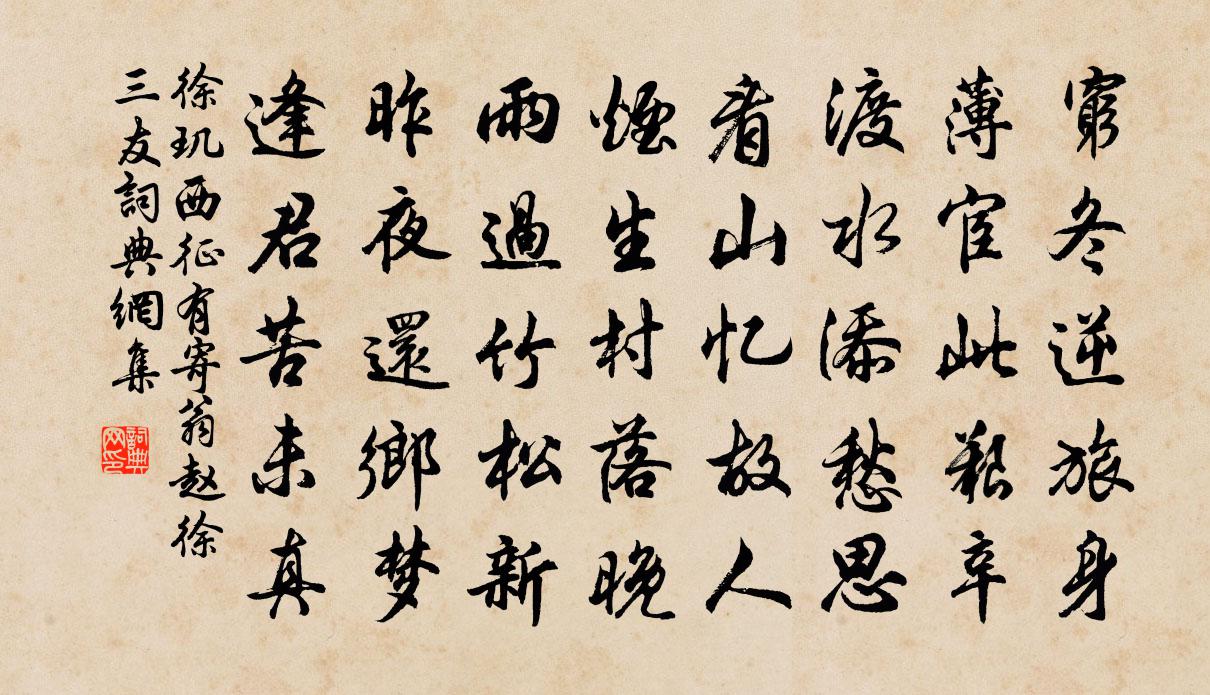 窮冬逆旅身
薄宦此艱辛
渡水添愁思
看山忆故人
煙生村落晚
雨過竹松新
昨夜還鄉梦
逢君苦未真
徐玑西征有寄翁赵徐
三友詞典網集
詞典
网印